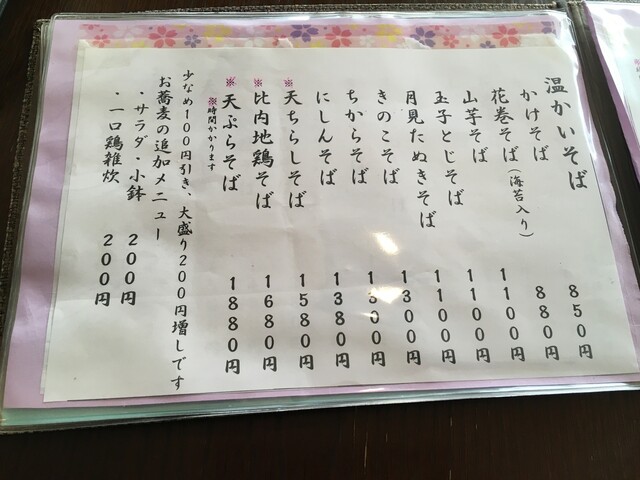 温かいそば
かけそば 850円
花巻そば(海苔入り) 880円
山芋そば 1100円
玉子とじそば 1100円
月見たぬきそば 1100円
きのこそば 1300円
ちからそば 1300円
にしんそば 1380円
※天ちらしそば 1580円
※比内地鶏そば 1680円
※天ぷらそば 1880円
※時間かかります
少なめ100円引き、大盛り200円増しです
お蕎麦の追加メニュー
・サラダ・小鉢 200円
・一口鶏雑炊 200円